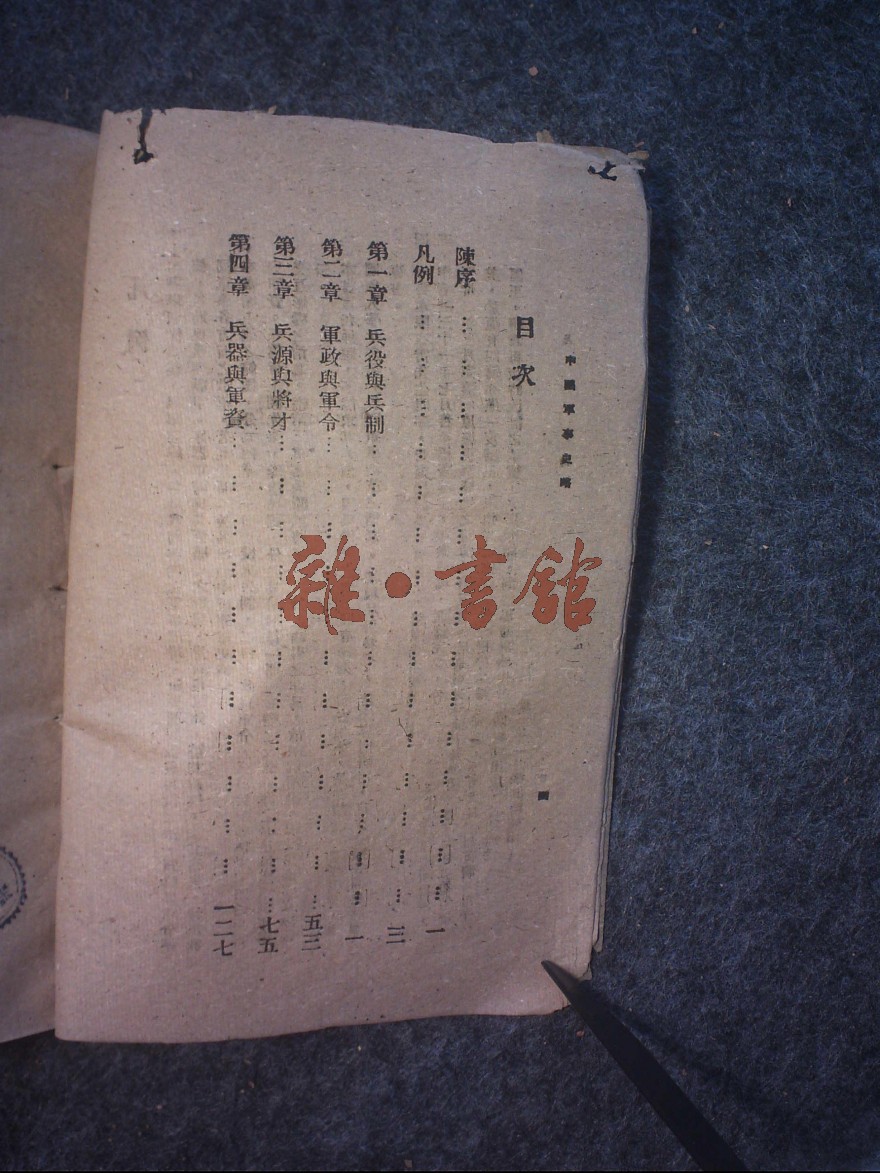 中國軍事史略
目次
陳序……一
凡例……三
第一章 兵役與兵制……一
第二章 軍政與軍令……五三
第三章 兵源與將才……七五
第四章 兵器與軍資……一二七
雜·書館